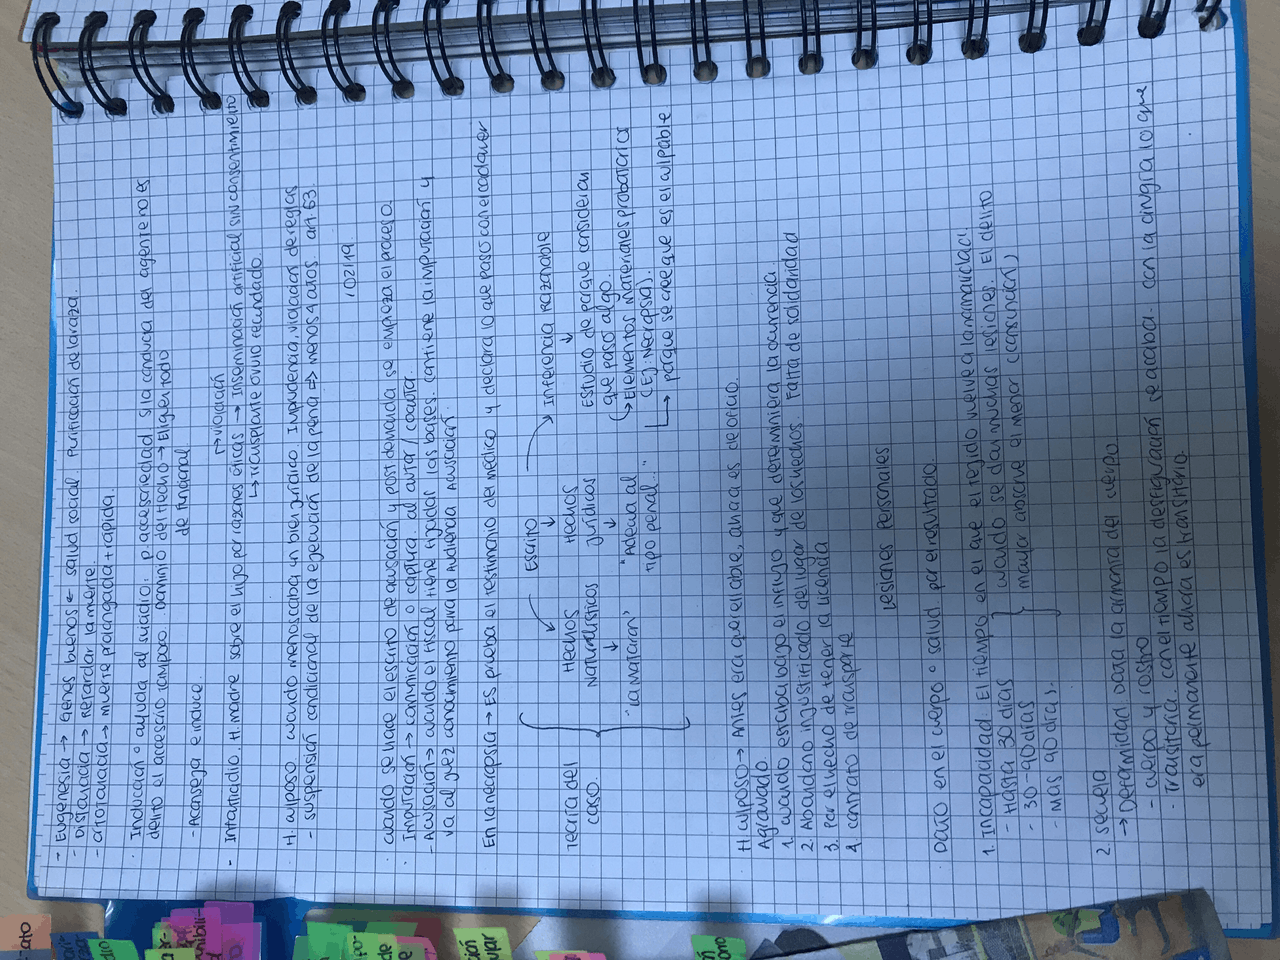 - Eugenesia → Genes buenos ← salud social. Purificación de la raza.
- Distanacia → Retardar la muerte.
- Ortotanacia → muerte prolongada + rápida.
· Inducción o ayuda al suicidio: P accesoriedad, si la conducta del agente no es
delito el accesorio tampoco. Dominio del hecho → El gen todo
de funcional
- Aconseja e induce.
↱ violación
- Infanticidio. H. madre sobre el hijo por razones éticas → Inseminación artificial sin consentimiento
↳ transplante ovulo fecundado.
· H. culposo. cuando menoscaba un bien jurídico. Imprudencia, violación de reglas
- suspensión condicional de la ejecución de la pena ⇒ menos 4 años. art. 63.
102119
· cuando se hace el escrito de acusación y post demanda se empieza el proceso.
· Imputación → comunicación o captura al autor / coautor.
- Acusación → cuando el fiscal tiene fijadas las bases. contiene la imputación y
va al juez conocimiento para la audiencia acusación.
En la necropsia → Es prueba el testimonio del médico y declara lo que paso con el cadaver
Escrito
Teoría del caso.
Hechos Naturalísticos
↓
"La mataron"
Hechos Jurídicos
↓
"Adecua al tipo penal.."
Inferencia razonable
↓
Estudio de porque consideran
que paso algo.
↳ Elementos materiales probatorios
(Ej: Necropsia).
↳ porque se cree que es el culpable
H culposo → Antes era querella ble, ahora es de oficio.
Agravado
1. cuando estaba bajo el influjo y que determiniera la ocurrencia.
2. Abandono injustificado del lugar de los hechos. Falta de solidaridad
3. Por el hecho de tener la licencia
4. contrato de transporte
Lesiones Personales
Daño en el cuerpo o salud, por el resultado.
1. Incapacidad. El tiempo en el que el tejido vuelve a la normalidad.
- Hasta 30 días
- 30-90 días
- Mas 90 días.
cuando se dan muchas lesiones. El delito
mayor absorve el menor (consunción)
2. secuela
→ Deformidad daña la armonía del cuerpo
- cuerpo y rostro
· Transitoria. con el tiempo la desfiguración se acaba. con la cirugía lo que
era permanente ahora es transitorio.